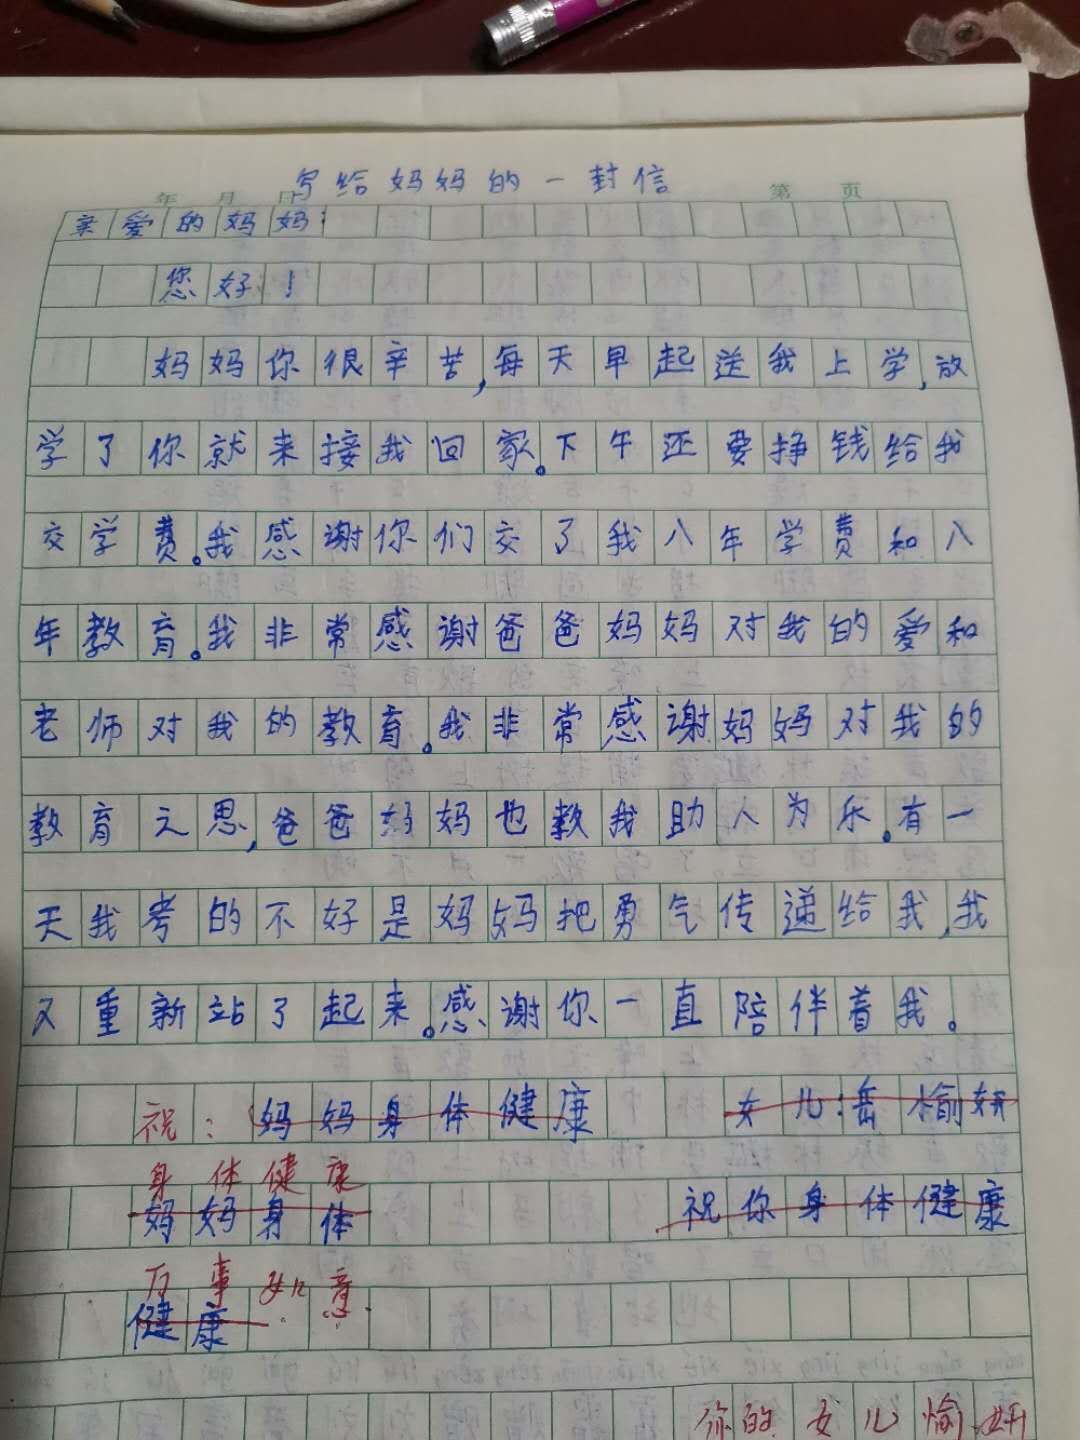 写给妈妈的一封信
年 月 日 第 页
亲爱的妈妈:
您好!
妈妈你很辛苦,每天早起送我上学,放
学了你就来接我回家。下午还要挣钱给我
交学费。我感谢你们交了我八年学费和八
年教育。我非常感谢爸爸妈妈对我的爱和
老师对我的教育。我非常感谢妈妈对我的
教育之思,爸爸妈妈也教我助人为乐。有一
天我考的不好是妈妈把勇气传递给我,我
又重新站了起来。感谢你一直陪伴着我。
祝:妈妈身体健康 女儿:岳愉妍
身体健康
妈妈身体 祝你身体健康
万事如意.
健康
你的女儿愉妍